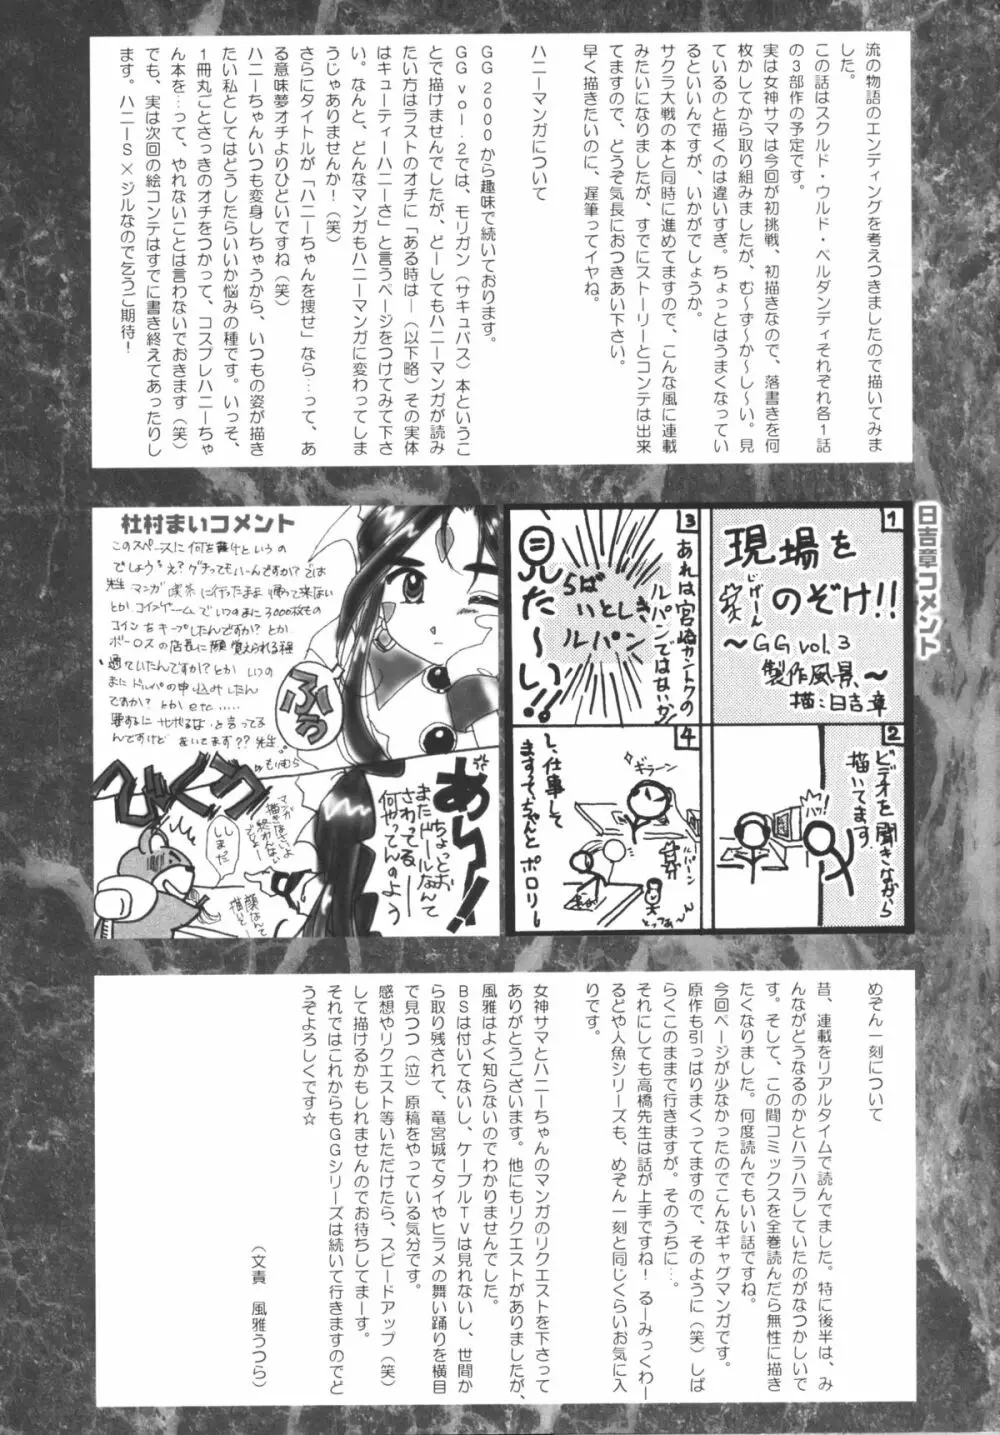 流の物語のエンディングを考えつきましたので描いてみま
した。
この話はスクルド・ウルド・ベルダンディそれぞれ各１話
の３部作の予定です。
実は女神サマは今回が初挑戦、初描きなので、落書きを何
枚かしてから取り組みましたが、む〜ず〜か〜し〜い。見
ているのと描くのは違いすぎ。ちょっとはうまくなってい
るといいんですが、いかがでしょうか。
サクラ大戦の本と同時に進めてますので、こんな風に連載
みたいになりましたが、すでにストーリーとコンテは出来
てますので、どうぞ気長におつきあい下さい。
早く描きたいのに、遅筆ってイヤね。
ハニーマンガについて
GG2000から趣味で続いております。
GGvol.2では、モリガン（サキュバス）本というこ
とで描けませんでしたが、どーしてもハニーマンガが読み
たい方はラストのオチに「ある時は―（以下略）その実体
はキューティーハニーさ」と言うページをつけてみて下さ
い。なんと、どんなマンガもハニーマンガに変わってしま
うじゃありませんか！（笑）
さらにタイトルが「ハニーちゃんを捜せ」なら…って、あ
る意味夢オチよりひどいですね（笑）
ハニーちゃんいつも変身しちゃうから、いつもの姿が描き
たい私としてはどうしたらいいか悩みの種です。いっそ、
１冊丸ごとさっきのオチをつかって、コスプレハニーちゃ
ん本を…って、やれないことは言わないでおきます（笑）
でも、実は次回の絵コンテはすでに書き終えてあったりし
ます。ハニーＳ×ジルなので乞うご期待！
日吉章コメント
1
現場を
のぞけ!!
じげーん
〜GG vol.3
製作風景〜
描:日吉章
2
ビデオを聞きながら
描いてます。
3
あれは宮崎カントクの
ルパンではないか!
らぱ
いとしき
ルパン
見た〜い!!
4
ギラーン
ルパーン
とっつぁ〜ん
し、仕事して
ますって、ちゃんと
ポロリー
杜村まいコメント
このスペースに何を書けというの
でしょうえ?グチってもいーんですか?では
先生 マンガ喫茶に行ったまま帰って来ない
とか コインゲームでいつのまに3000枚もの
コインをキープしたんですか?とか
ボーロスの店長に顔覚えられる程
通っていたんですか?とか いつの
まにドルパの申込みしたん
ですか?とかetc.....
要するにサボるなと言ってる
んですけど きいてます??先生
もりむら
ふっ
びくっ
あらー!
ちょっとお
さわってる―
またドールなんて
何やってんのよう
しまだ
めぞん一刻について
昔、連載をリアルタイムで読んでました。特に後半は、み
んながどうなるのかとハラハラしていたのがなつかしいで
す。そして、この間コミックスを全巻読んだら無性に描き
たくなりました。何度読んでもいい話ですね。
今回ページが少なかったのでこんなギャグマンガです。
原作も引っぱりまくってますので、そのように（笑）しば
らくこのままで行きますが。そのうちに…。
それにしても高橋先生は話が上手ですね！るーみっくわー
るとや人魚シリーズも、めぞん一刻と同じくらいお気に入
りです。
女神サマとハニーちゃんのマンガのリクエストを下さって
ありがとうございます。他にもリクエストがありましたが、
風雅はよく知らないのでわかりませんでした。
ＢＳは付いてないし、ケーブルＴＶは見れないし、世間か
ら取り残されて、竜宮城でタイやヒラメの舞い踊りを横目
で見つつ（泣）原稿をやっている気分です。
感想やリクエスト等いただけたら、スピードアップ（笑）
して描けるかもしれませんのでお待ちしてまーす。
それではこれからもＧＧシリーズは続いて行きますのでど
うぞよろしくです☆
（文責　風雅うつら）